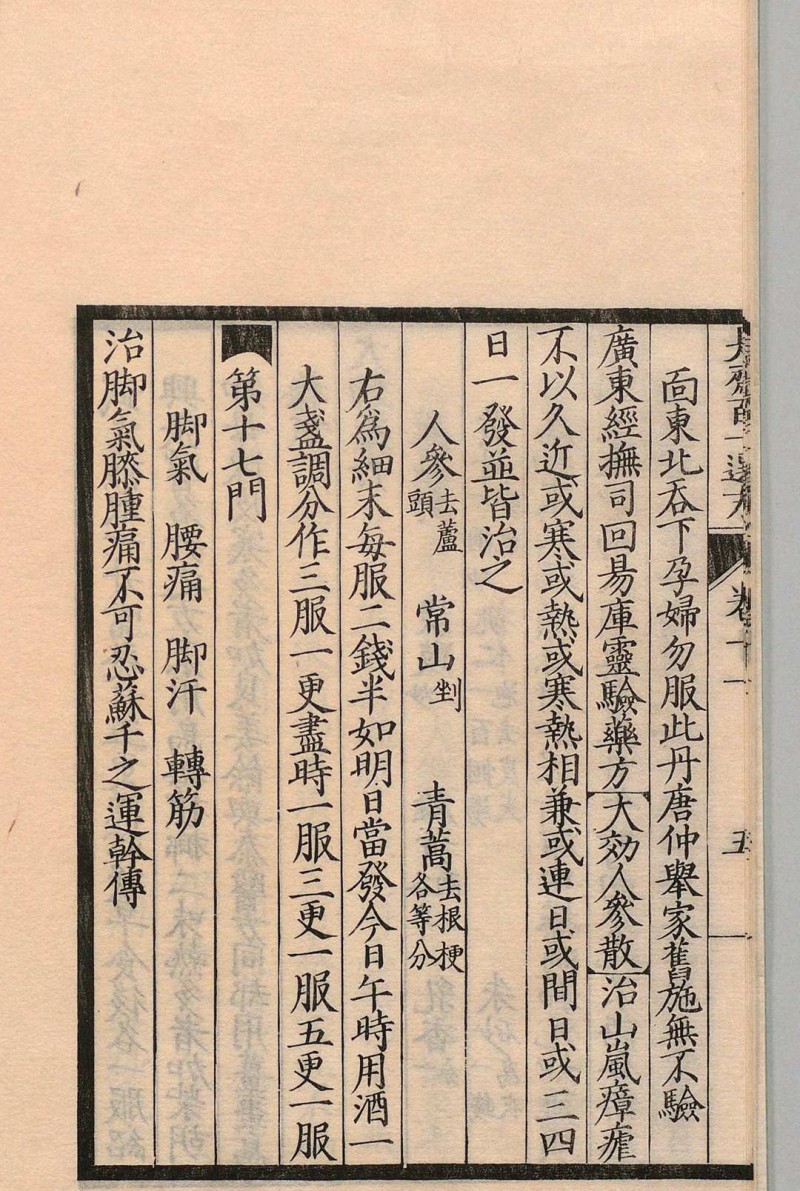 面東北吞下孕婦勿服此丹唐仲舉家舊施無不驗
廣東經撫司回易庫靈驗藥方大効人參散治山嵐瘴瘧
不以久近或寒或熱或寒熱相兼或連日或間日或三四
日一發並皆治之
人參去蘆頭 常山剉 青蒿去根梗各等分
右為細末每服二錢半如明日當發今日午時用酒一
大盞調分作三服一更盡時一服三更一服五更一服
第十七門
脚氣 腰痛 脚汗 轉筋
治脚氣膝腫痛不可忍蘇千之運幹傳